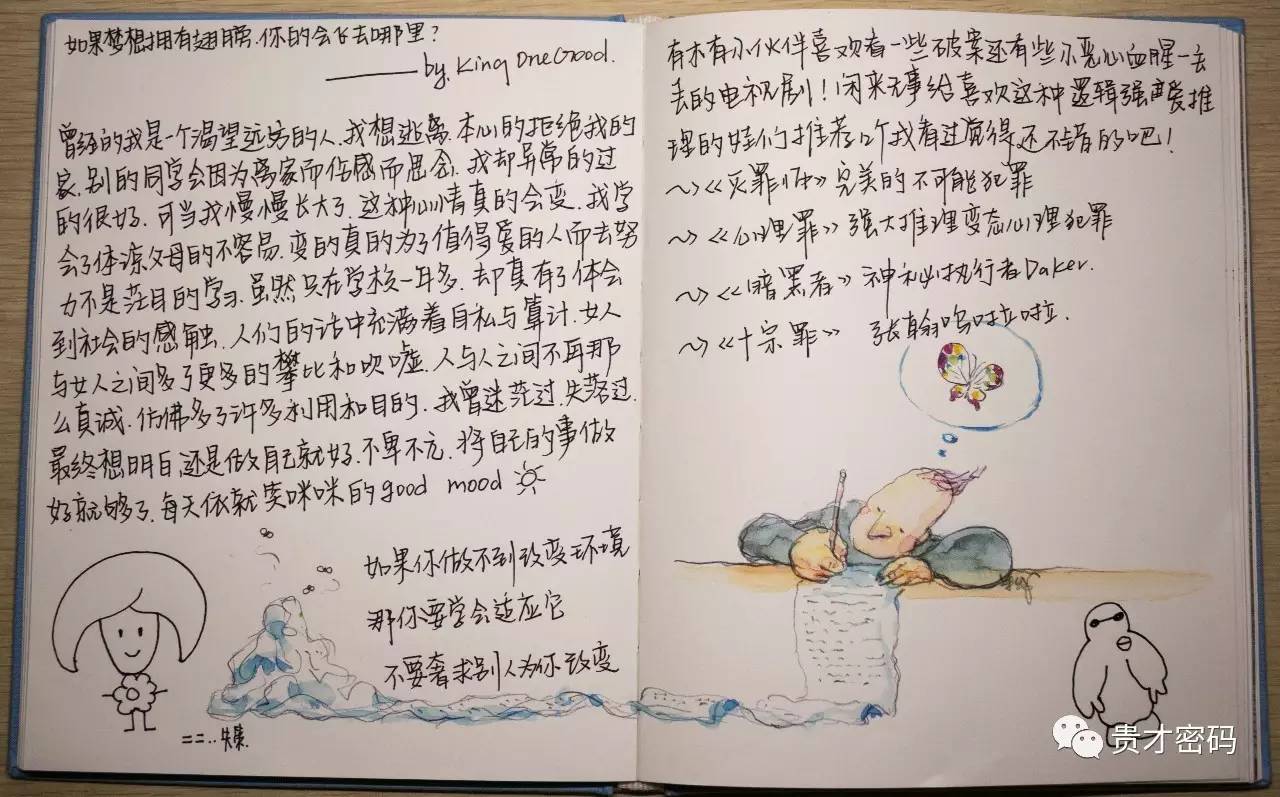 如果梦想拥有翅膀,你的会飞去哪里?
——by. King OneGood.
曾经的我是一个渴望远方的人.我想逃离.本心的拒绝我的
家.别的同学会因为离家而伤感而思念.我却异常的过
的很好.可当我慢慢长大了.这种心情真的会变.我学
会了体谅父母的不容易.变的真的为了值得爱的人而去努
力不是茫目的学习.虽然只在学校一年多.却真有了体会
到社会的感触.人们的话中充满着自私与算计.女人
与女人之间多了更多的攀比和吹嘘.人与人之间不再那
么真诚.仿佛多了许多利用和目的.我曾迷茫过.失落过.
最终想明白,还是做自己就好.不卑不亢.将自己的事做
好就够了.每天依就笑咪咪的good mood
如果你做不到改变环境
那你要学会适应它
不要奢求别人为你改变
二二..失集.
有木有小伙伴喜欢看一些破案还有些小恶心血腥一丢
丢的电视剧!闲来无事给喜欢这种逻辑强聂爱推
理的娃们推荐几个我看过觉得还不错的吧!
~>《灭罪师》完美的不可能犯罪
~>《心理罪》强大推理变态心理犯罪
~>《暗黑者》神秘执行者Daker.
~>《十宗罪》 张翰呜啦啦.
贵才密码